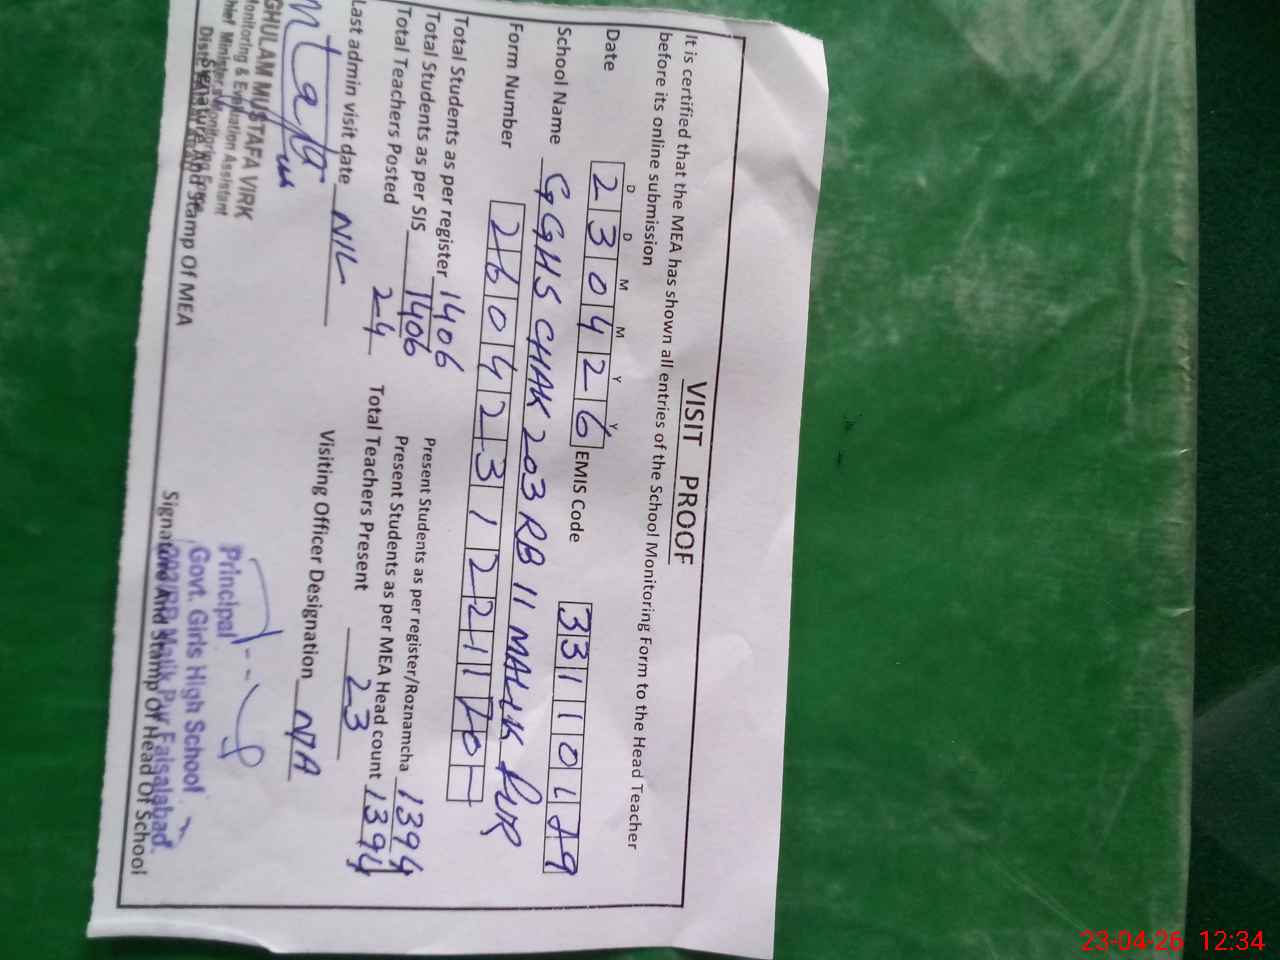 VISIT PROOF
It is certified that the MEA has shown all entries of the School Monitoring Form to the Head Teacher
before its online submission
D D M M Y Y
Date 230426 EMIS Code 331101
School Name GGHS CHAK 203 RB II MALIK PUR
Form Number 2604231221
Total Students as per register 1406 Present Students as per register/Roznamcha 1394
Total Students as per SIS 1406 Present Students as per MEA Head count 1394
Total Teachers Posted 24 Total Teachers Present 23
Last admin visit date NIL Visiting Officer Designation N/A
GHULAM MUSTAFA VIRK
Monitoring & Evaluation Assistant
Chief Minister's Monitoring Force
Signature And Stamp Of MEA
Principal
Govt. Girls High School
203/RB Malik Pur Faisalabad.
Signature And Stamp Of Head Of School
23-04-26 12:34